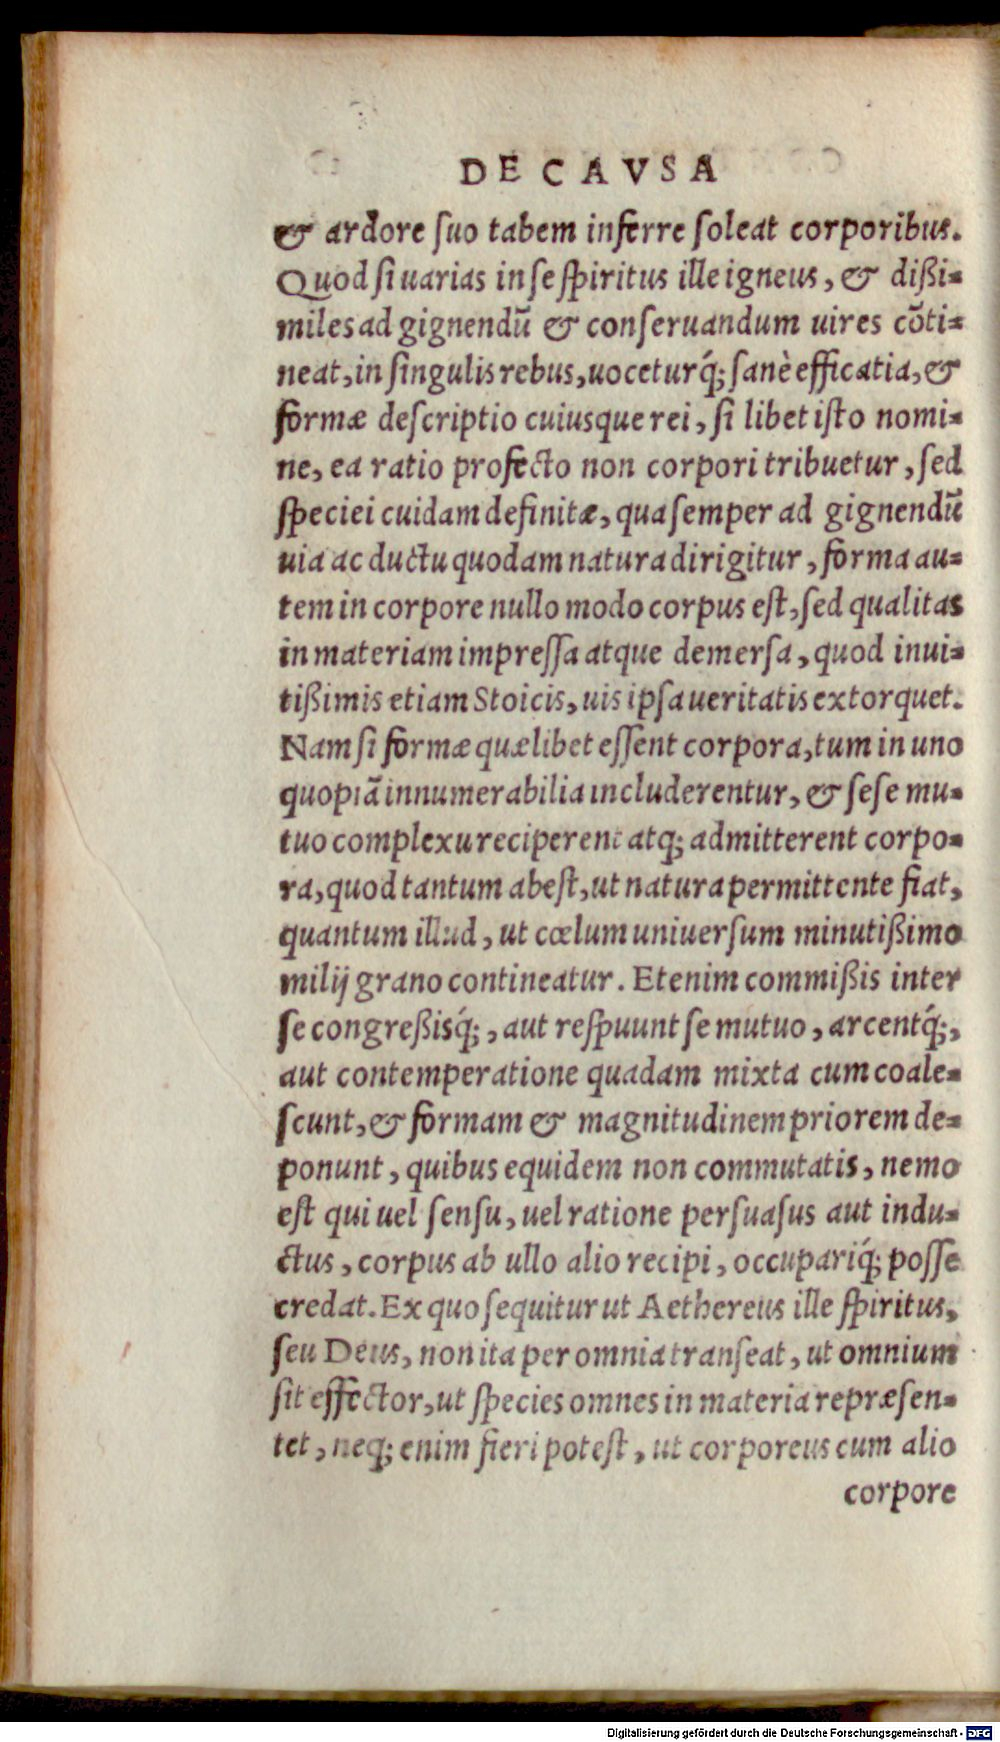 DE CAVSA
& ardore ſuo tabem inferre ſoleat corporibus.
Quod ſi uarias in ſe ſpiritus ille igneus, & dißi-
miles ad gignendũ & conſeruandum uires cõti-
neat, in ſingulis rebus, uocetur q́; ſanè efficatia, &
formæ deſcriptio cuiusque rei, ſi libet iſto nomi-
ne, ea ratio profecto non corpori tribuetur, ſed
ſpeciei cuidam definitæ, qua ſemper ad gignendũ
uia ac ductu quodam natura dirigitur, forma au-
tem in corpore nullo modo corpus eſt, ſed qualitas
in materiam impreſſa atque demerſa, quod inui-
tißimis etiam Stoicis, uis ipſa ueritatis extorquet.
Nam ſi formæ quælibet eſſent corpora, tum in uno
quopiã innumerabilia includerentur, & ſeſe mu-
tuo complexu reciperent atq; admitterent corpo-
ra, quod tantum abeſt, ut natura permittente fiat,
quantum illud, ut cœlum uniuerſum minutißimo
milij grano contineatur. Etenim commißis inter
ſe congreßisq́;, aut reſpuunt ſe mutuo, arcentq́;,
aut contemperatione quadam mixta cum coale-
ſcunt, & formam & magnitudinem priorem de-
ponunt, quibus equidem non commutatis, nemo
eſt qui uel ſenſu, uel ratione perſuaſus aut indu-
ctus, corpus ab ullo alio recipi, occupariq́; poſſe
credat. Ex quo ſequitur ut Aethereus ille ſpiritus,
ſeu Deus, non ita per omnia tranſeat, ut omnium
ſit effector, ut ſpecies omnes in materia repræſen-
tet, neq; enim fieri poteſt, ut corporeus cum alio
corpore
Digitalisierung gefördert durch die Deutsche Forschungsgemeinschaft - DFG